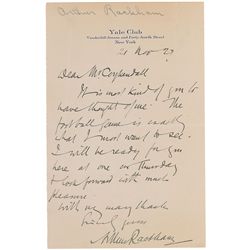 Arthur Rackham
Yale Club
Vanderbilt Avenue and Forty-fourth Street
New York
21 Nov 27
Dear Mr
It is most kind of you to
have thought of me. The
football game is exactly
what I most want to see.
I will be ready for you
here at one on Thursday
& look forward with much
pleasure
With very many thanks
yours
Arthur Rackham